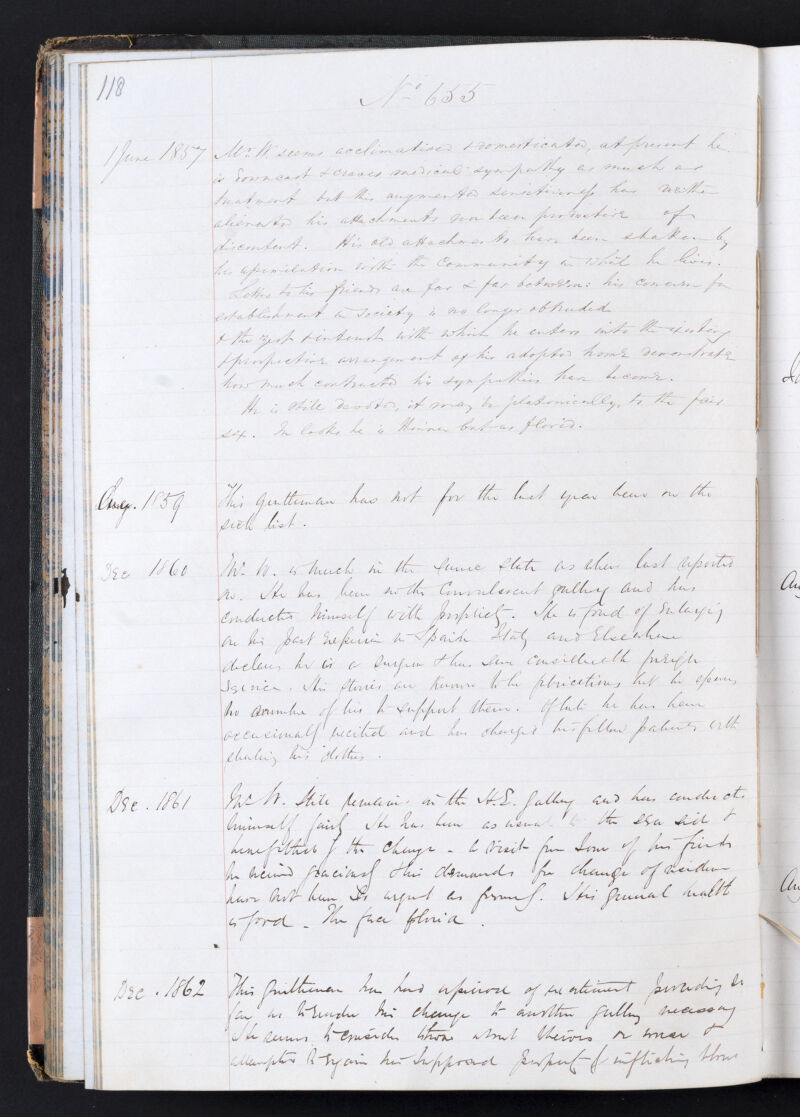 118
No 655
1 June 1857 Mr. W. seems acclimatised & domesticated, at present he
is downcast & craves medical sympathy as much as
treatment but this augmented sensitiveness has neither
alienated his attachments nor been productive of
discontent. His old attachments have been shaken by
his assimilation with the community in which he lives.
Letters to his friends are far & far between: his concern for
establishment in Society is no longer obtruded
& the zest & interest with which he enters into the existing
& prospective arrangement of his adopted home demonstrate
how much contracted his sympathies have become.
He is still devoted, it may be platonically, to the fair
sex. In looks he is thinner but as florid.
Aug. 1859 This gentleman has not for the last year been on the
sick list.
Dec 1860 Mr. W. is much in the same state as when last reported
on. He has been in the Convalescent gallery and has
conducted himself with propriety. He is fond of enlarging
on his past and Elsewhere
declares he is a surgeon & has seen considerable foreign
Service. His stories are known to be fabrications but he opens
no number of lies to support them. Of late he has been
occasionally excited and has charged his fellow patients with
stealing his clothes.
Dec. 1861 Mr W. still remains in the H.E. gallery and has conducted
himself fairly He has been as usual to the sea side &
benefitted by the change - A visit from some of his friends
he received graciously & his demands for change of residence
have not been so urgent as formerly. His general health
is good - The face florid.
Dec. 1862 This gentleman has had a period of excitement proceeding so
far as to render his change to another gallery necessary
He seems to consider those about thieves or worse &
attempted to again his supposed property by inflicting blows